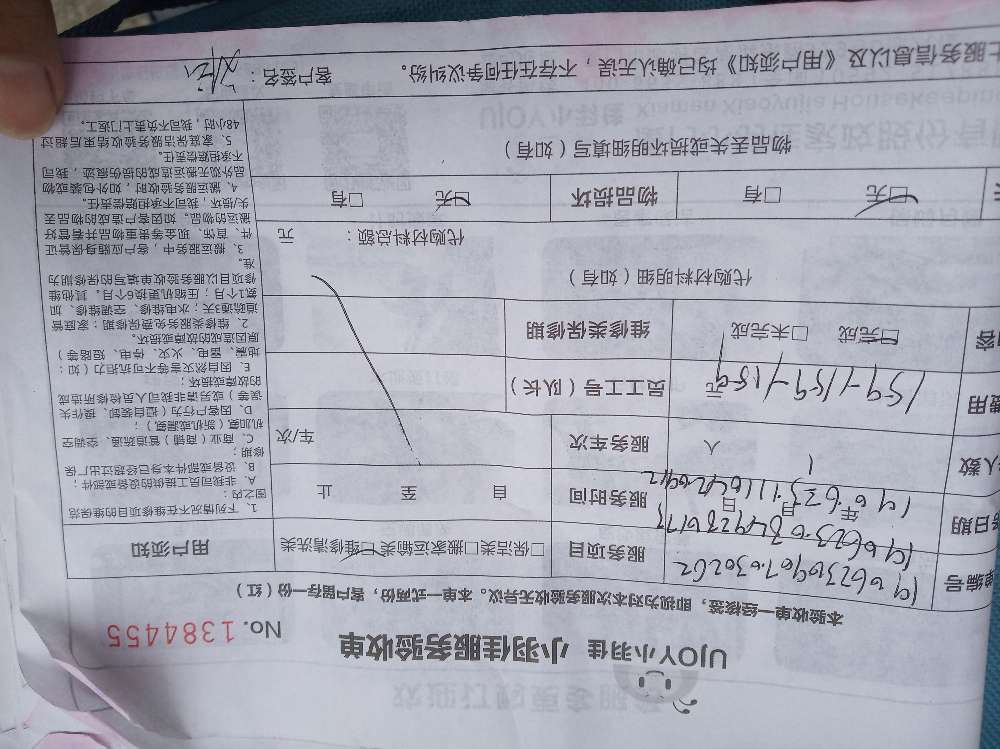 UJOY小羽佳 小羽佳服务验收单
No. 1384455
本验收单一经核签，即视为对本次服务验收无异议。本单一式两份，客户留存一份（红）
编号
服务项目 □保洁类□搬家运输类□维修清洗类
用户须知
日期
年 月 日
服务时间 自 至 止
人数 1 人
服务车次 车/次
费用 159-1159-1159 元
员工工号（队长）
□完成 □未完成
维修类保修期
代购材料明细（如有）
代购材料总额： 元
□无 □有 物品损坏 □无 □有
物品丢失或损坏明细填写（如有）
上服务信息以及《用户须知》均已确认无误，不存在任何争议纠纷。 客户签名：
1、下列情况不在维修项目的维保范
围之内：
A、非我司员工提供的设备或部件；
B、设备或部件本身已经超过出厂保
修期；
C、商业（商铺）管道疏通、空调空
机加氟（新机或漏氟）；
D、因客户行为（擅自装卸、操作失
误等）或另请非我司人员检修所造成
的故障或损坏；
E、因自然灾害等不可抗拒力（如：
地震、雷电、火灾、停电、短路等）
原因造成的故障或损坏。
2、维修类服务免费保修期：家庭管
道疏通3天；水电维修、空调维修、加
氟1个月；压缩机更换6个月。其他维
修项目以服务验收单填写的保修期为
准。
3、搬运服务中，客户应随身保管证
件、首饰、现金等贵重物品并看管好
搬运的物品。如因客户造成的物品丢
失/损坏，我司不承担赔偿责任。
4、搬运服务验收时，如外包装或物
品外观无搬运造成的损伤痕迹，我司
不承担赔偿责任。
5、家庭保洁服务验收结束后超过
48小时，我司不负责上门返工。